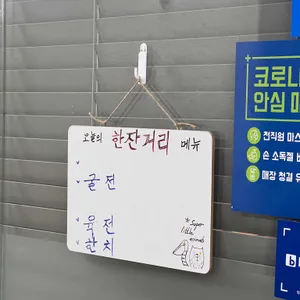 오늘의 한잔거리 메뉴
굴전
육전
한치
*Super
little
코로나
안심 매
전직원 마스
손 소독젤 비
매장 청결 유